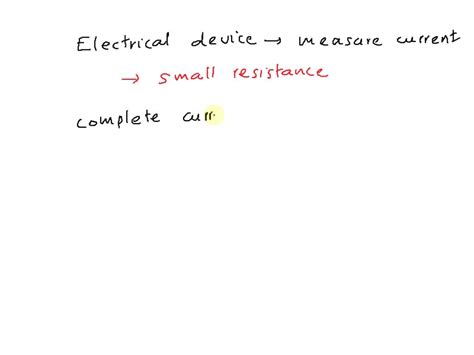 Electrical device → measure current
→ small resistance
complete curr